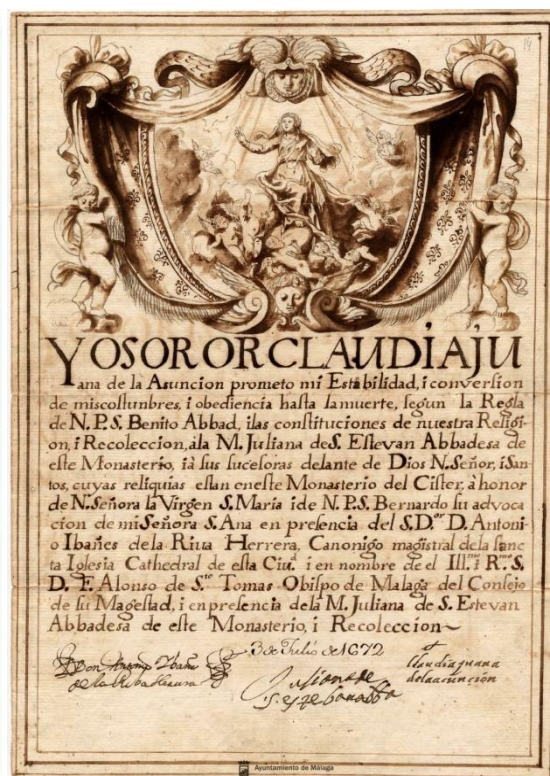 14
YO SOROR CLAUDIA JU
ana de la Asuncion prometo mi Estabilidad, i conversion
de mis costumbres, i obediencia hasta la muerte, segun la Regla
de N.P.S. Benito Abbad, i las constituciones de nuestra Religi-
on, i Recoleccion, à la M. Juliana de S. Estevan Abbadesa de
este Monasterio, i à sus sucesoras delante de Dios N. Señor, i San-
tos, cuyas reliquias estan en este Monasterio del Cister, à honor
de N. Señora la Virgen S. Maria i de N.P.S. Bernardo su advoca
cion de mi Señora S. Ana en presencia del S.D.ᵒʳ D. Antoni
o Ibañes de la Riua Herrera, Canonigo magistral de la sanc
ta Iglesia Cathedral de esta Ciu.ᵈ i en nombre de el Ill.ᵐᵒ i R.ᵐᵒ S.
D. F. Alonso de S.ᵗᵒ Tomas Obispo de Malaga del Consejo
de su Magestad, i en presencia de la M. Juliana de S. Estevan
Abbadesa de este Monasterio, i Recoleccion~
3 de Julio de 1672
Don Antonio Ybañes
de la Riba Herrera
Juliana de
S. esteban abba
Claudia juana
de la asuncion
Ayuntamiento de Málaga